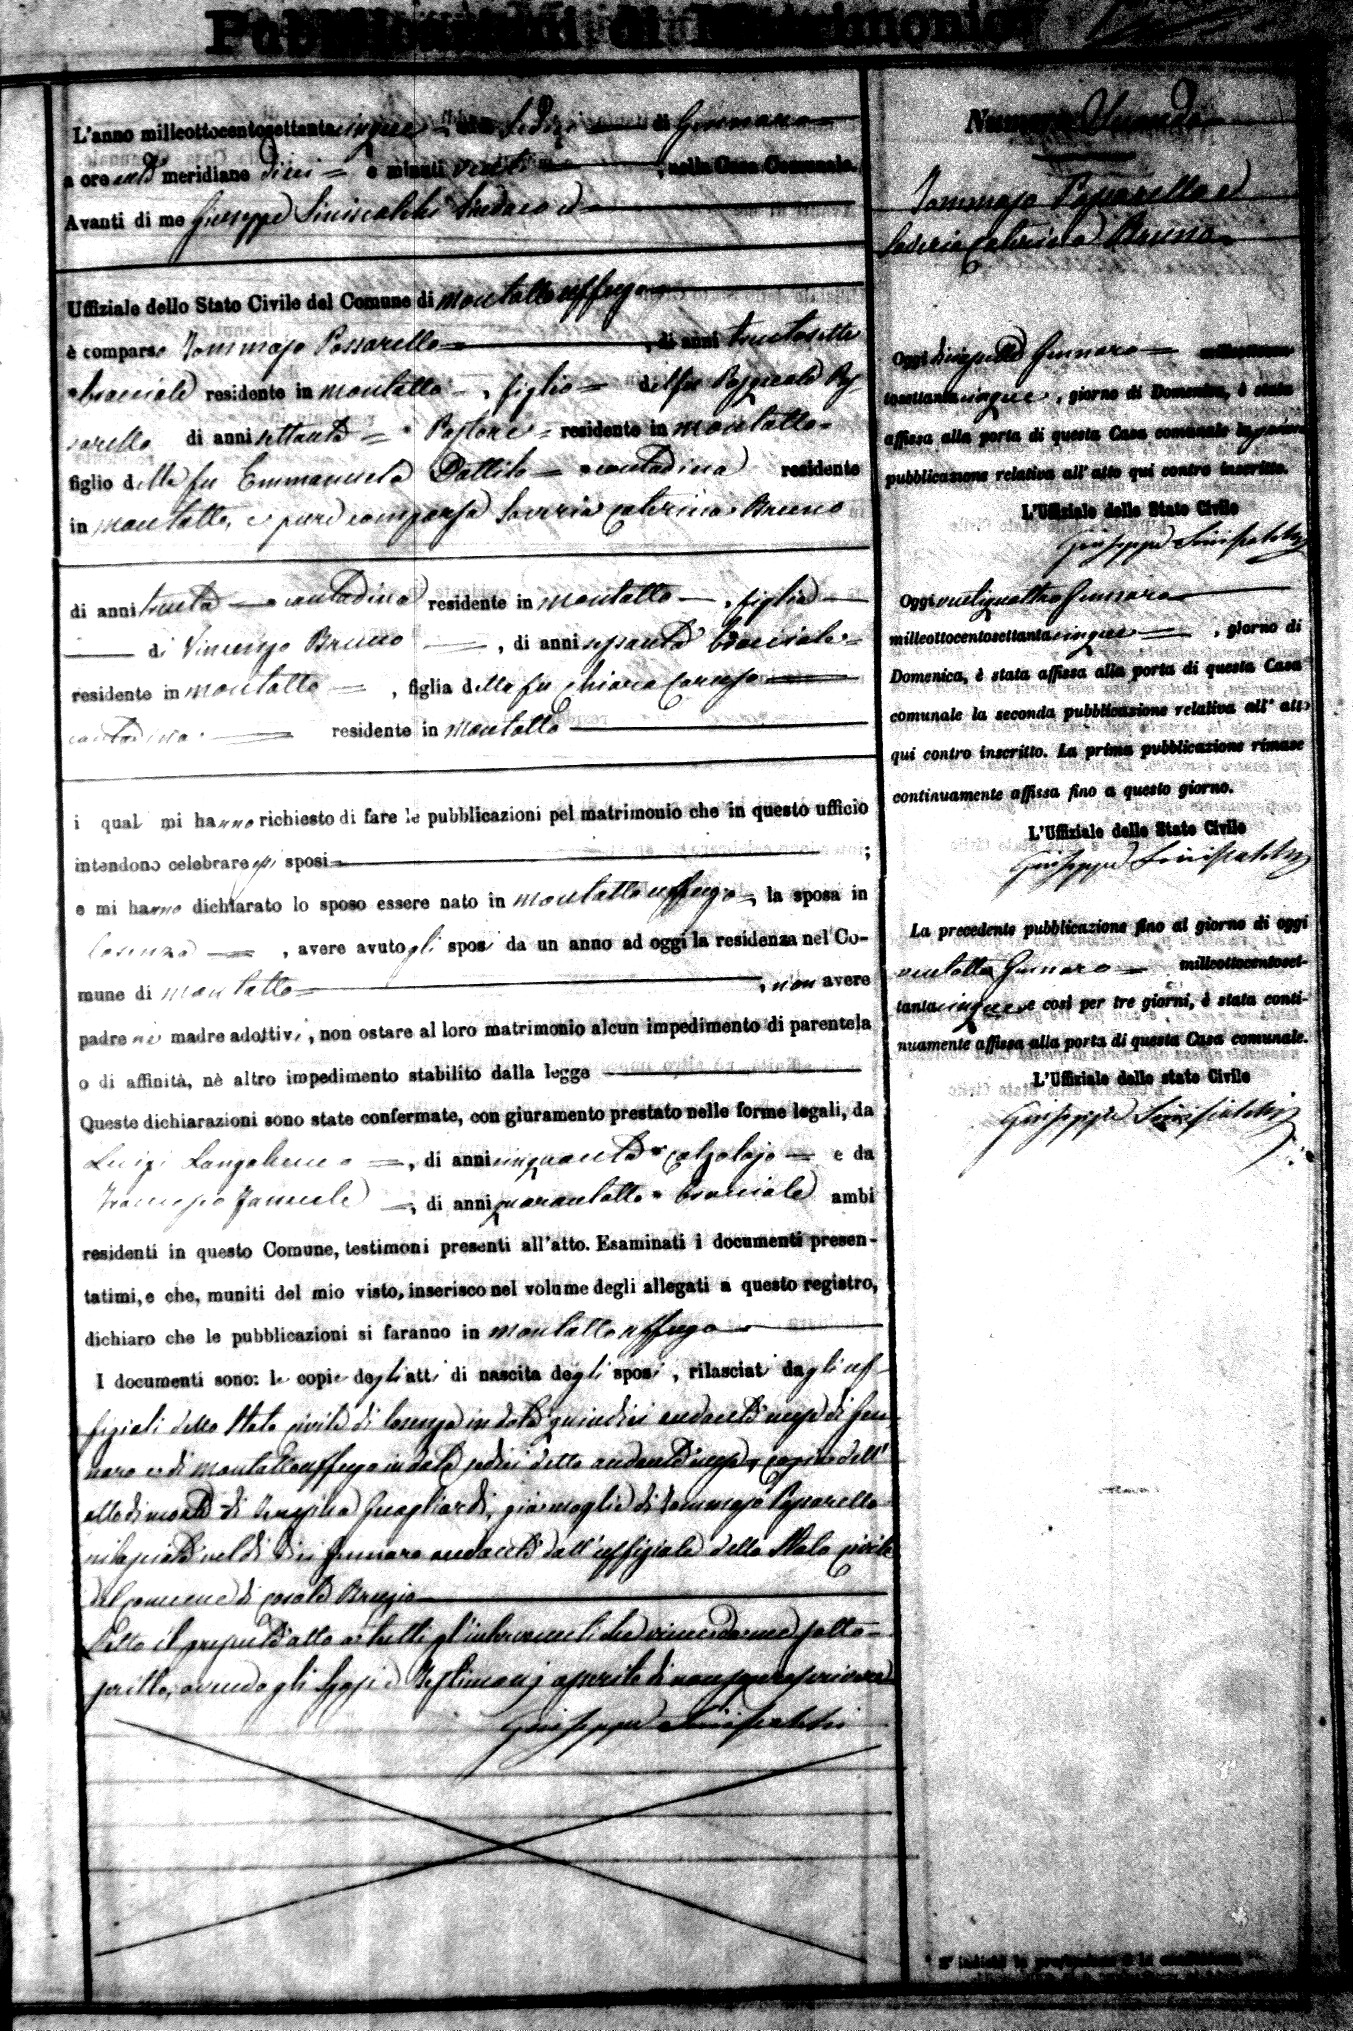 Pubblicazioni di Matrimonio
L'anno milleottocentosettantacinque addì Sedici di Gennaro
a ore anti meridiane dieci e minuti venti, nella Casa Comunale.
Avanti di me Giuseppe Siniscalchi Sindaco ed
Uffiziale dello Stato Civile del Comune di Montalto Uffugo
è comparso Tommaso Passarello, di anni trentasette
bracciale residente in Montalto, figlio del fu Pasquale Pas
sarello di anni settanta Pastore residente in Montalto
figlio della fu Emmanuela Dattilo contadina residente
in Montalto, e pure comparsa Saveria Caterina Bruno
di anni trenta contadina residente in Montalto, figlia
di Vincenzo Bruno, di anni sessanta bracciale
residente in Montalto, figlia della fu Chiara Caruso
contadina residente in Montalto
i quali mi hanno richiesto di fare le pubblicazioni pel matrimonio che in questo ufficio
intendono celebrare essi sposi ;
e mi hanno dichiarato lo sposo essere nato in Montalto Uffugo, la sposa in
Cosenza, avere avuto gli sposi da un anno ad oggi la residenza nel Co-
mune di Montalto, non avere
padre nè madre adottivi, non ostare al loro matrimonio alcun impedimento di parentela
o di affinità, nè altro impedimento stabilito dalla legge
Queste dichiarazioni sono state confermate, con giuramento prestato nelle forme legali, da
Luigi, di anni cinquanta calzolajo e da
Francesco, di anni quarantotto bracciale ambi
residenti in questo Comune, testimoni presenti all'atto. Esaminati i documenti presen-
tatimi, e che, muniti del mio visto, inserisco nel volume degli allegati a questo registro,
dichiaro che le pubblicazioni si faranno in Montalto Uffugo
I documenti sono: le copie degli atti di nascita degli sposi, rilasciati dagli uf-
fiziali dello Stato Civile di Cosenza in data quindici andante mese di Gen
naro e di Montalto Uffugo in data sedici detto andante mese, copia dell'
atto di morte di Gagliardi, già moglie di Tommaso Passarello
rilasciata nel dì dieci Gennaro andante dall'uffiziale dello Stato Civile
del Comune di Casole Bruzio
Letto il presente atto a tutti gl'intervenuti che viene da me sotto-
scritto, avendo gli sposi e Testimonj asserito di non sapere scrivere
Giuseppe Siniscalchi
Numero Secondo
Tommaso Passarello e
Saveria Caterina Bruno
Oggi diciassette Gennaro milleottocen-
tosettantacinque, giorno di Domenica, è stata
affissa alla porta di questa Casa comunale la prima
pubblicazione relativa all'atto qui contro inscritto.
L'Uffiziale dello Stato Civile
Giuseppe Siniscalchi
Oggi ventiquattro Gennaro
milleottocentosettantacinque, giorno di
Domenica, è stata affissa alla porta di questa Casa
comunale la seconda pubblicazione relativa all' atto
qui contro inscritto. La prima pubblicazione rimase
continuamente affissa fino a questo giorno.
L'Uffiziale dello Stato Civile
Giuseppe Siniscalchi
La precedente pubblicazione fino al giorno di oggi
ventotto Gennaro milleottocentoset-
tantacinque e così per tre giorni, è stata conti-
nuamente affissa alla porta di questa Casa comunale.
L'Uffiziale dello stato Civile
Giuseppe Siniscalchi